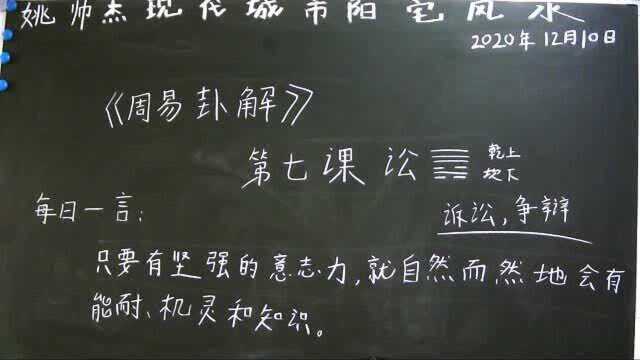 姚帅杰现代城市阳宅风水
2020年12月10日
《周易卦解》
第七课 讼 乾上
坎下
每日一言：
诉讼，争辩
只要有坚强的意志力，就自然而然地会有
能耐、机灵和知识。